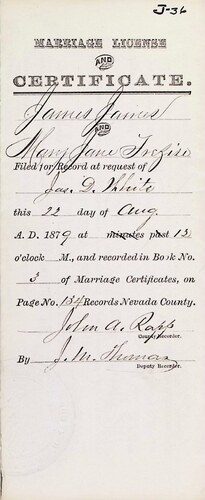 J-36
MARRIAGE LICENSE
AND
CERTIFICATE.
James James
AND
Mary Jane Trezise
Filed for Record at request of
Jas. D. White
this 22 day of Aug.
A. D. 1879 at minutes past 12
o'clock M., and recorded in Book No.
3 of Marriage Certificates, on
Page No. 134 Records Nevada County.
John A. Rapp
County Recorder.
By J. M. Thomas
Deputy Recorder.